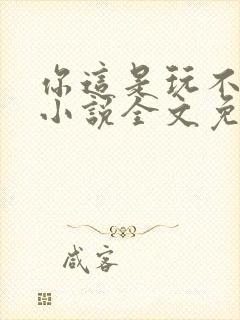 你這是玩不
小說全文免
咸客